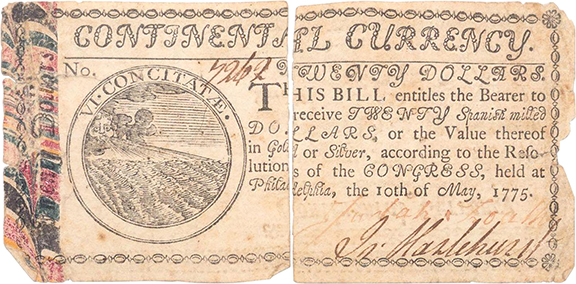 CONTINENTAL CURRENCY.
No. TWENTY DOLLARS.
VI CONCITATÆ.
THIS BILL entitles the Bearer to
receive TWENTY Spanish milled
DOLLARS, or the Value thereof
in Gold or Silver, according to the Reso-
lutions of the CONGRESS, held at
Philadelphia, the 10th of May, 1775.
Hazlehurst